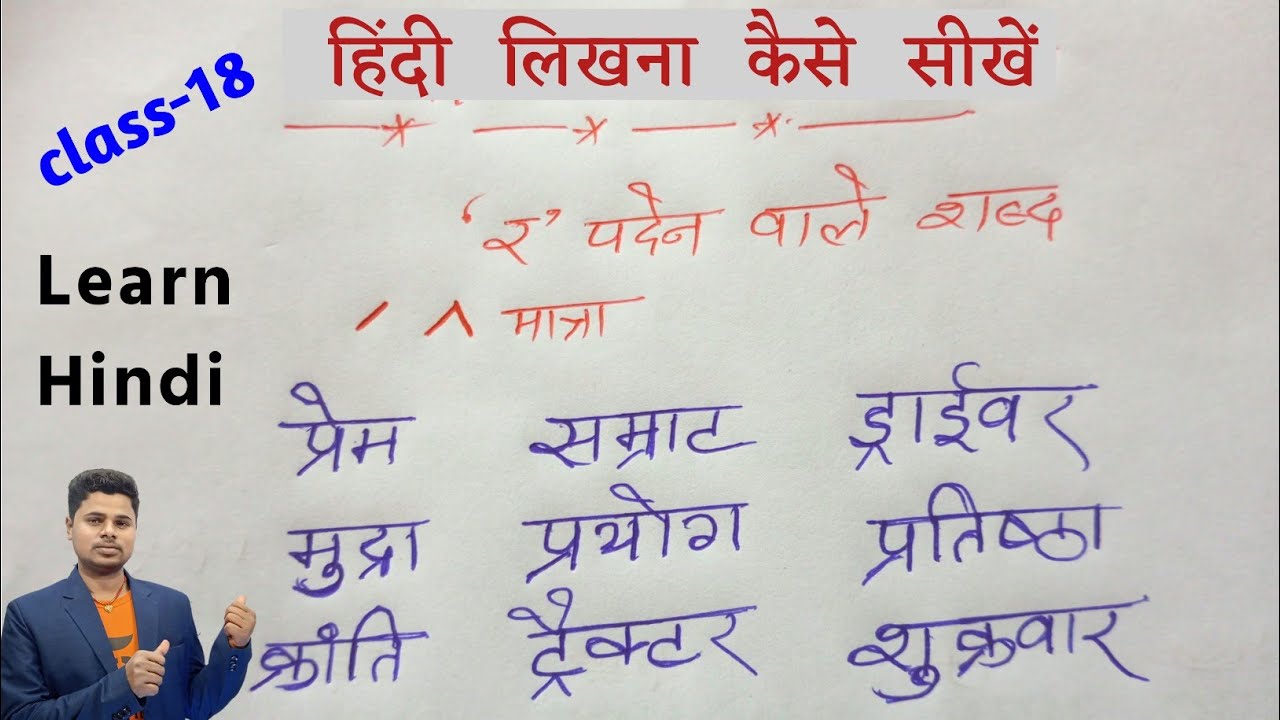 class-18
हिंदी लिखना कैसे सीखें
Learn
Hindi
‘र’ पदेन वाले शब्द
मात्रा
प्रेम सम्राट ड्राईवर
मुद्रा प्रयोग प्रतिष्ठा
क्रांति ट्रैक्टर शुक्रवार